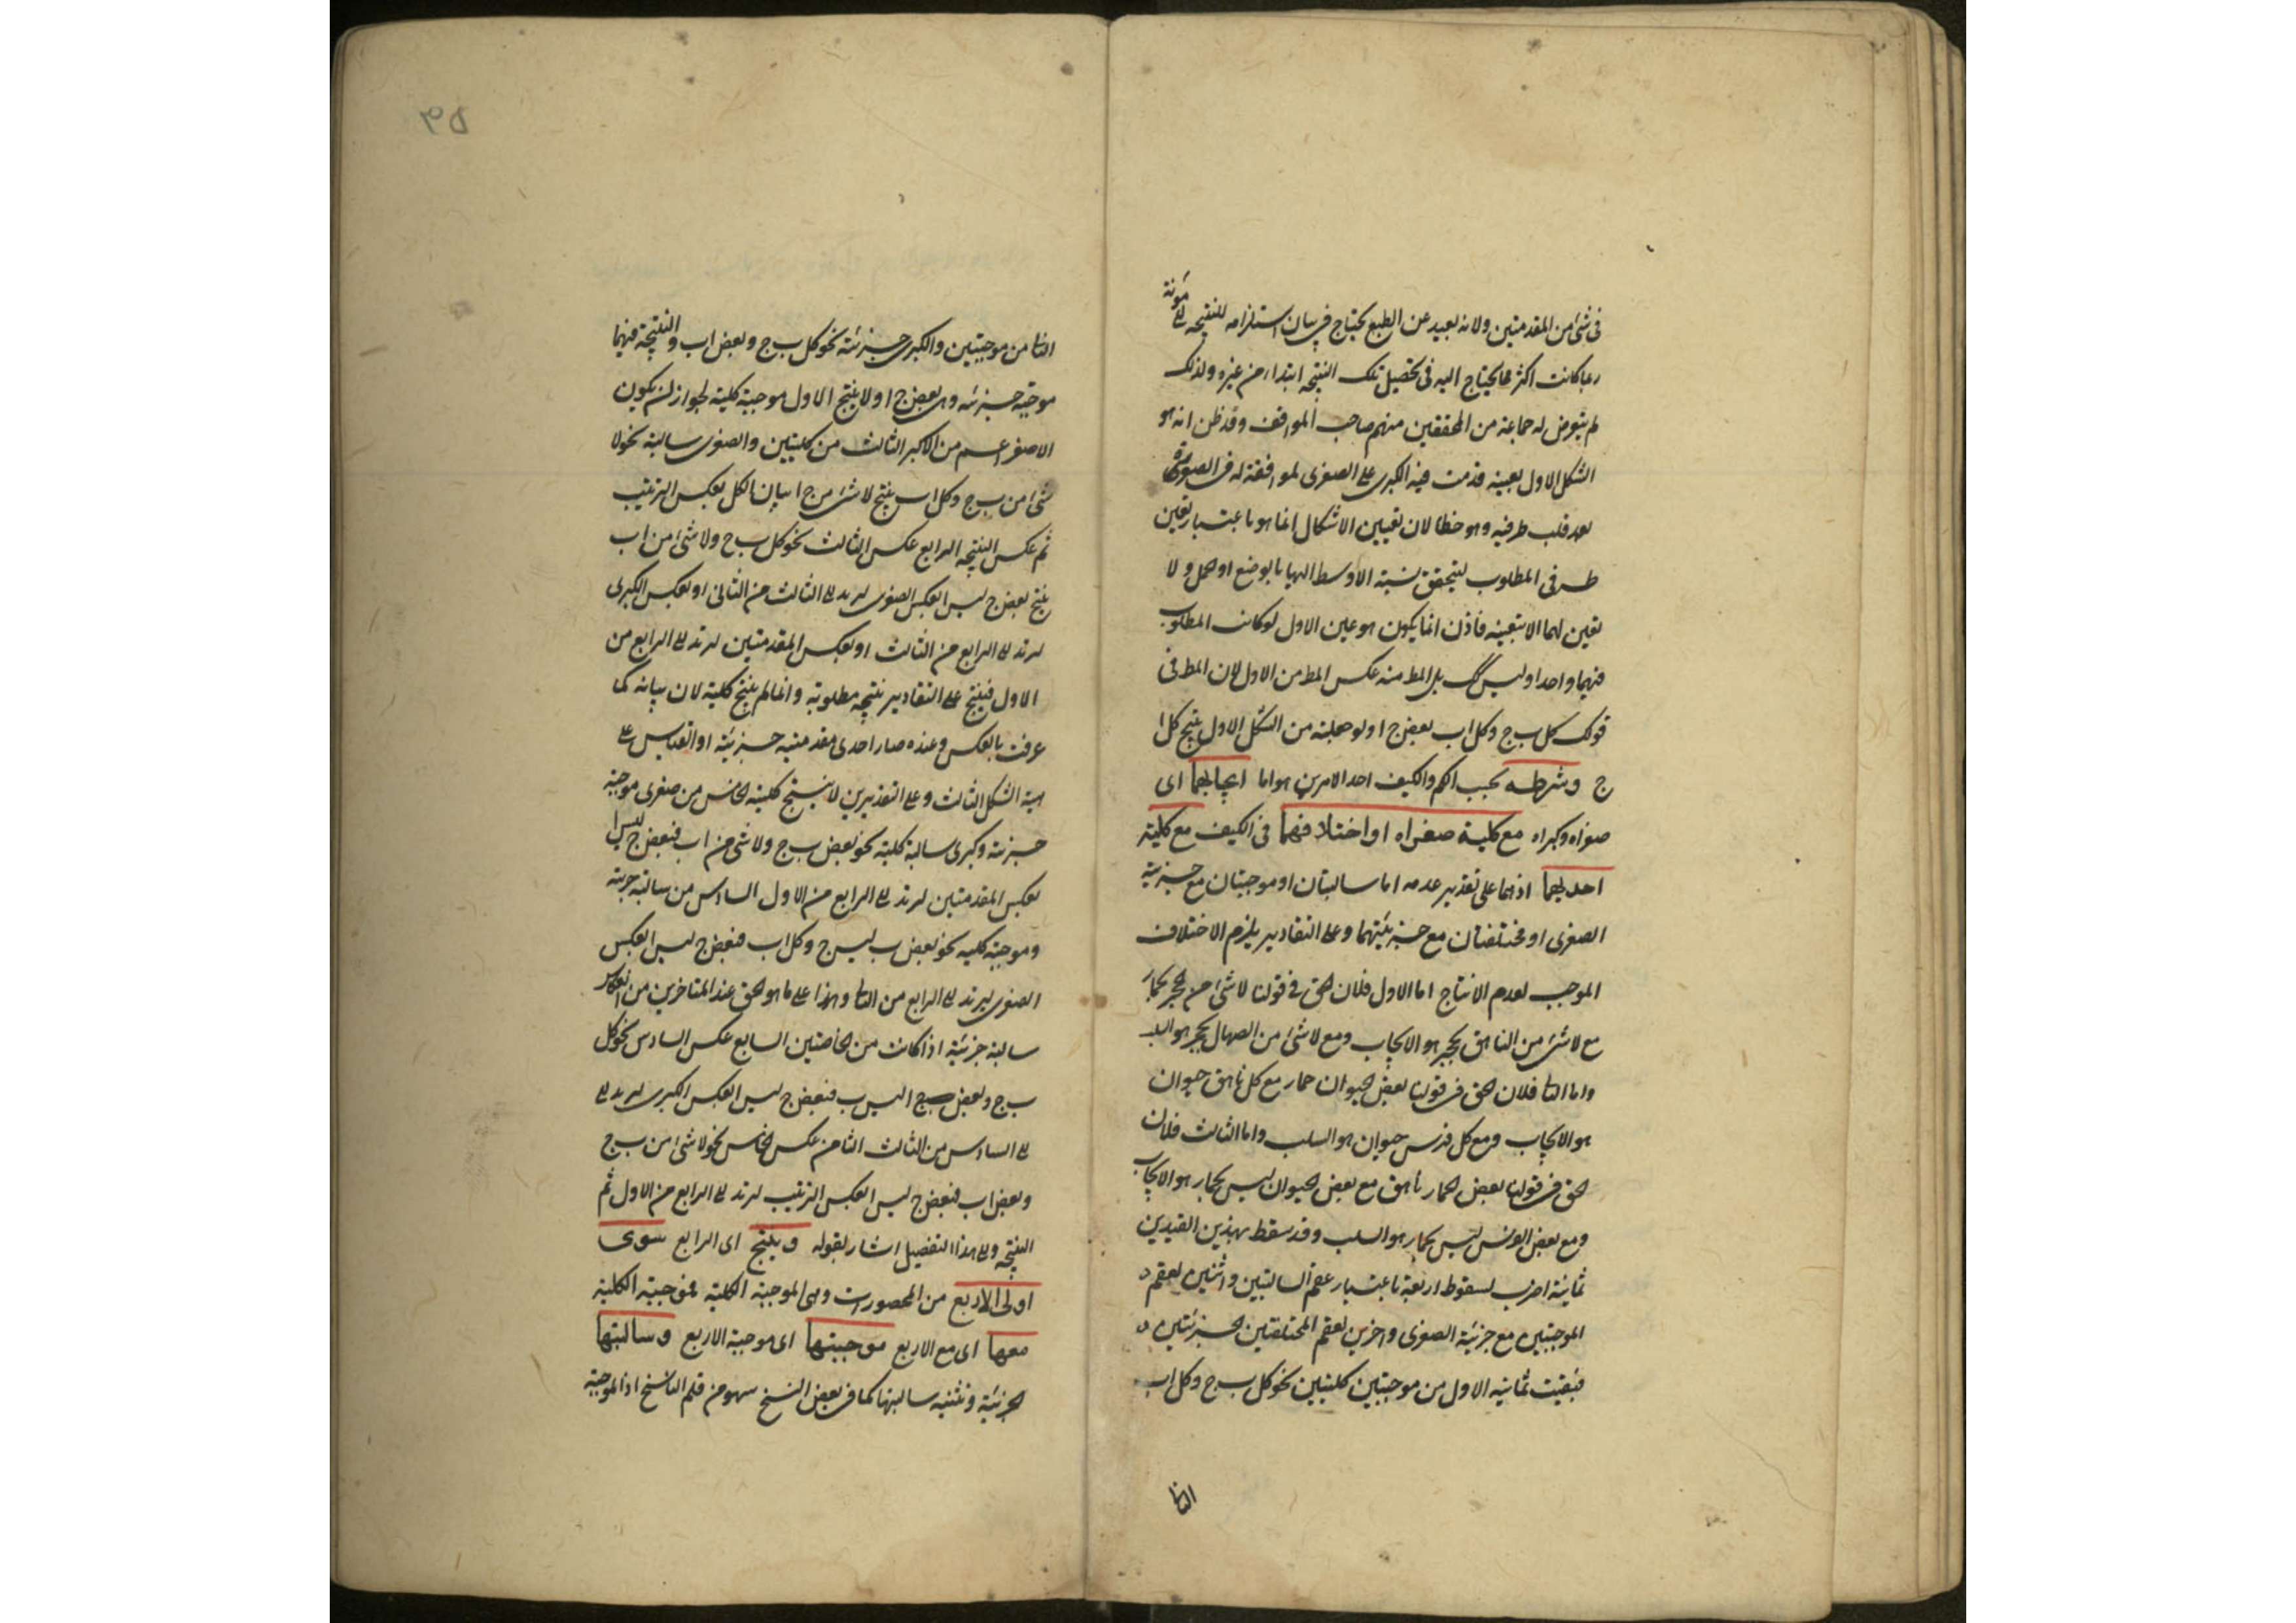 فى شئ من المقدمتين ولانه بعيد عن الطبع يحتاج فى بيان استلزامه للنتيجه الى مؤنة
ربما كانت اكثر مما يحتاج اليه فى تحصيل تلك النتيجه ابتداء من غيره ولذلك
لم يتعرض له جماعة من المحققين منهم صاحب المواقف وقد ظن انه هو
الشكل الاول بعينه قدمت فيه الكبرى على الصغرى لموافقته له فى الصورة
بعد قلب طرفيه وهو خطا لان تعيين الاشكال انما هو باعتبار تعين
طرفى المطلوب ليتحقق نسبة الاوسط اليها بالوضع او الحمل ولا
تعين لهما الا بتعينه فاذن انما يكون هو عين الاول لو كانت المطلوب
فيهما واحدا وليس كك بل المط منه عكس المط من الاول لان المط فى
قولك كل ب ج وكل اب بعض ج ا ولو جعلته من الشكل الاول ينتج كل ا
ج وشرطه بحسب الكم والكيف احد الامرين هو اما ايجابهما اى
صغراه وكبراه مع كلية صغراه او اختلافهما فى الكيف مع كلية
احديهما اذ هما على تقدير عدمه اما سالبتان او موجبتان مع جزئية
الصغرى او مختلفتان مع جزئيتهما وعلى التقادير يلزم الاختلاف
الموجب لعدم الانتاج اما الاول فلان الحق فى قولنا لا شئ من الحجر بحمار
مع لا شئ من الناهق بحجر هو الايجاب ومع لا شئ من الصهال بحجر هو السلب
واما الثا فلان الحق فى قولنا بعض الحيوان حمار مع كل ناهق حيوان
هو الايجاب ومع كل فرس حيوان هو السلب واما الثالث فلان
الحق فى قولنا بعض الحمار ناهق مع بعض الحيوان ليس بحمار هو الايجاب
ومع بعض الفرس ليس بحمار هو السلب وقد سقط بهذين القيدين
ثمانية اضرب لسقوط اربعة باعتبار عقم السالبتين واثنين بعقم
الموجبتين مع جزئية الصغرى واخرين بعقم المختلفتين الجزئيتين
فبقيت ثمانيه الاول من موجبتين كليتين نحو كل ب ج وكل اب
الثا
الثا من موجبتين والكبرى جزئية نحو كل ب ج وبعض اب والنتيجة فيهما
موجبة جزئيه وهى بعض ج ا ولا ينتج الاول موجبة كلية لجواز ان يكون
الاصغر اعم من الاكبر الثالث من كليتين والصغرى سالبة نحو لا
شئ من ب ج وكل اب ينتج لا شئ من ج ا بيان الكل بعكس الترتيب
ثم عكس النتيجه الرابع عكس الثالث نحو كل ب ج ولا شئ من اب
ينتج بعض ج ليس ا بعكس الصغرى ليرتد الى الثالث من الثانى او بعكس الكبرى
ليرتد الى الرابع من الثالث او بعكس المقدمتين ليرتد الى الرابع من
الاول فينتج على التقادير نتيجه مطلوبة وانما لم ينتج كلية لان بيانه كما
عرفت بالعكس وعنده صار احدى مقدمتيه جزئية او القياس على
هيئة الشكل الثالث وعلى التقديرين لا ينتج كلية الخامس من صغرى موجبة
جزئية وكبرى سالبة كلية نحو بعض ب ج ولا شئ من اب فبعض ج ليس ا
بعكس المقدمتين ليرتد الى الرابع من الاول السادس من سالبة جزئية
وموجبة كليه نحو بعض ب ليس ج وكل اب فبعض ج ليس ا بعكس
الصغرى ليرتد الى الرابع من الثا وهذا على ما هو الحق عند المتاخرين من انعكاس
سالبة جزئية اذا كانت من الخاصتين السابع عكس السادس نحو كل
ب ج وبعض ا ليس ب فبعض ج ليس ا بعكس الكبرى ليرتد الى
الى السادس من الثالث الثامن عكس الخامس نحو لا شئ من ب ج
وبعض اب فبعض ج ليس ا بعكس الترتيب ليرتد الى الرابع من الاول ثم
النتيجه والى هذا التفصيل اشار بقوله وينتج اى الرابع سوى
اولى الاربع من المحصورات وهى الموجبة الكلية فموجبته الكلية
معها اى مع الاربع موجبتها اى موجبة الاربع وسالبتها
الجزئية وتثنيه سالبتها كما فى بعض النسخ سهو من قلم الناسخ اذ الموجبة